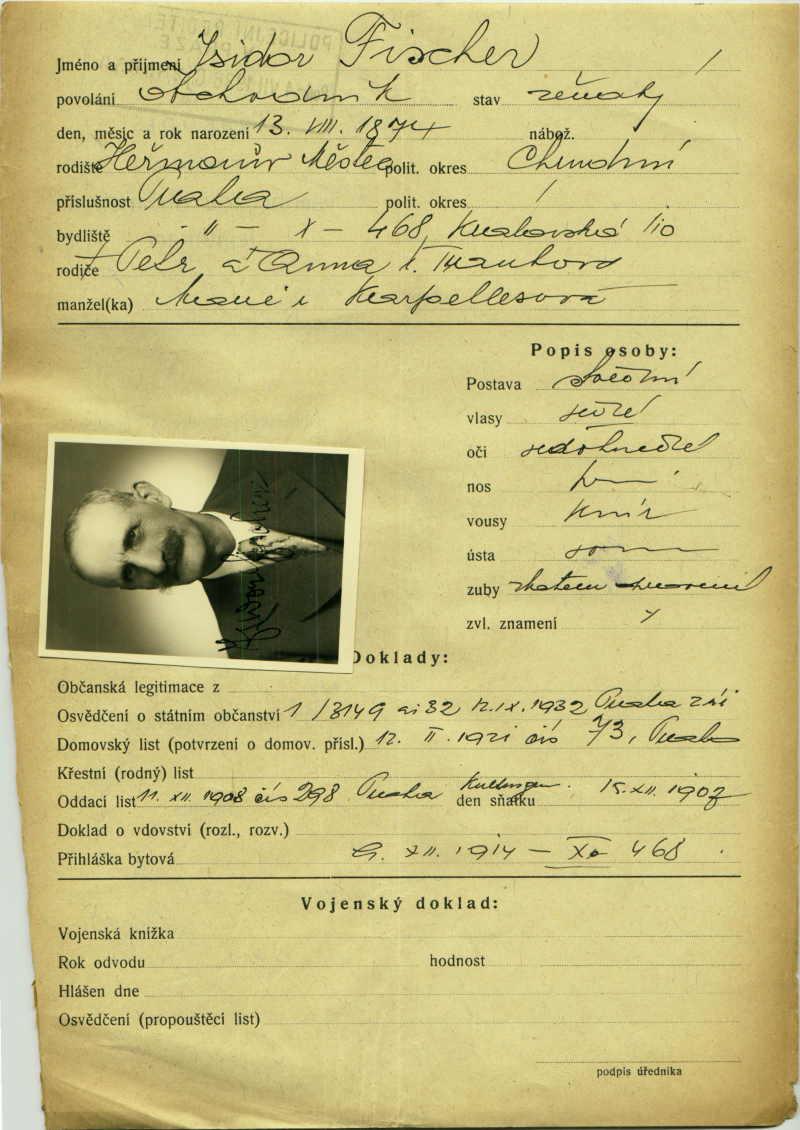 Jméno a příjmení Isidor Fischer
povolání obchodník stav ženatý
den, měsíc a rok narození 13. VIII. 1874 nábož.
rodiště Heřmanův Městec polit. okres Chrudim
příslušnost Praha polit. okres /
bydliště - " - X - 468, Královská 110
rodiče Petr a Anna
manžel(ka) Marie r. Karpellesová
Popis osoby:
Postava střední
vlasy šedé
oči šedohnědé
nos
vousy knír
ústa
zuby
zvl. znamení
Isidor Fischer
Doklady:
Občanská legitimace z
Osvědčení o státním občanství 1/3149 ai 32 12.IX.1932 Praha
Domovský list (potvrzení o domov. přísl.) 12. II. 1921 čís 73, Praha
Křestní (rodný) list
Oddací list 11. XII. 1908 čís 298 Praha den sňatku 15. XII. 1907
Doklad o vdovství (rozl., rozv.)
Přihláška bytová 9. XII. 1914 - X. 468.
Vojenský doklad:
Vojenská knížka
Rok odvodu hodnost
Hlášen dne
Osvědčení (propouštěcí list)
podpis úředníka